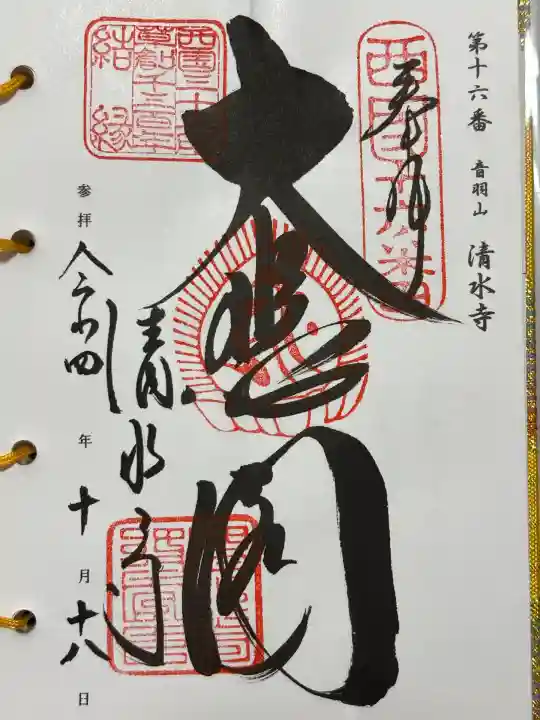 第十六番 音羽山 清水寺
奉拝
西国十六番
大悲閣
西国三十三所
草創千三百年
結縁
清水寺
参拝 令和四年十月十八日